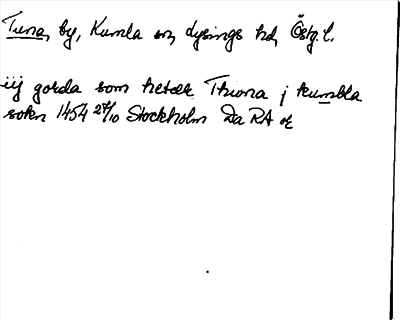 Tuna, by, Kumla sn, Lysings hd, Östg. l.
iij gorda som hetær Thuna j kumbla
sokn 1454 24/10 Stockholm Da RA or